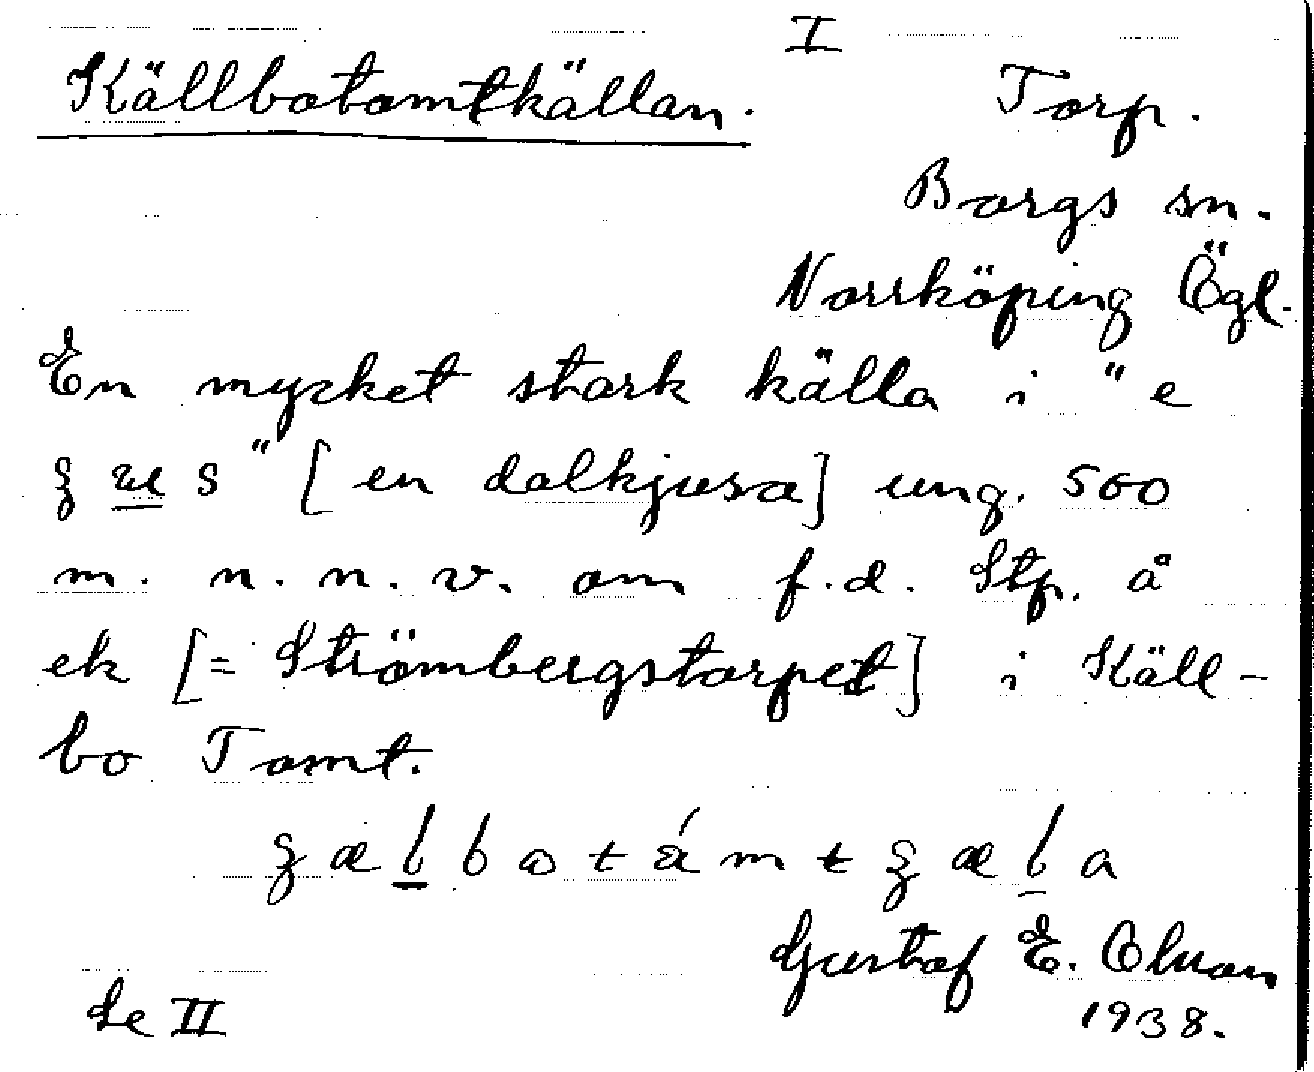 I
Källbotomtkällan.
Torp.
Borgs sn.
Norrköping Ögl.
En mycket stark källa i "e
ʒ u s" [en dalkjusa] ung. 500
m. n. n. v. om f.d. Stp. å
ek [= Strömbergstorpet] i Käll-
bo Tomt.
Gustaf E.
1938.
Se II